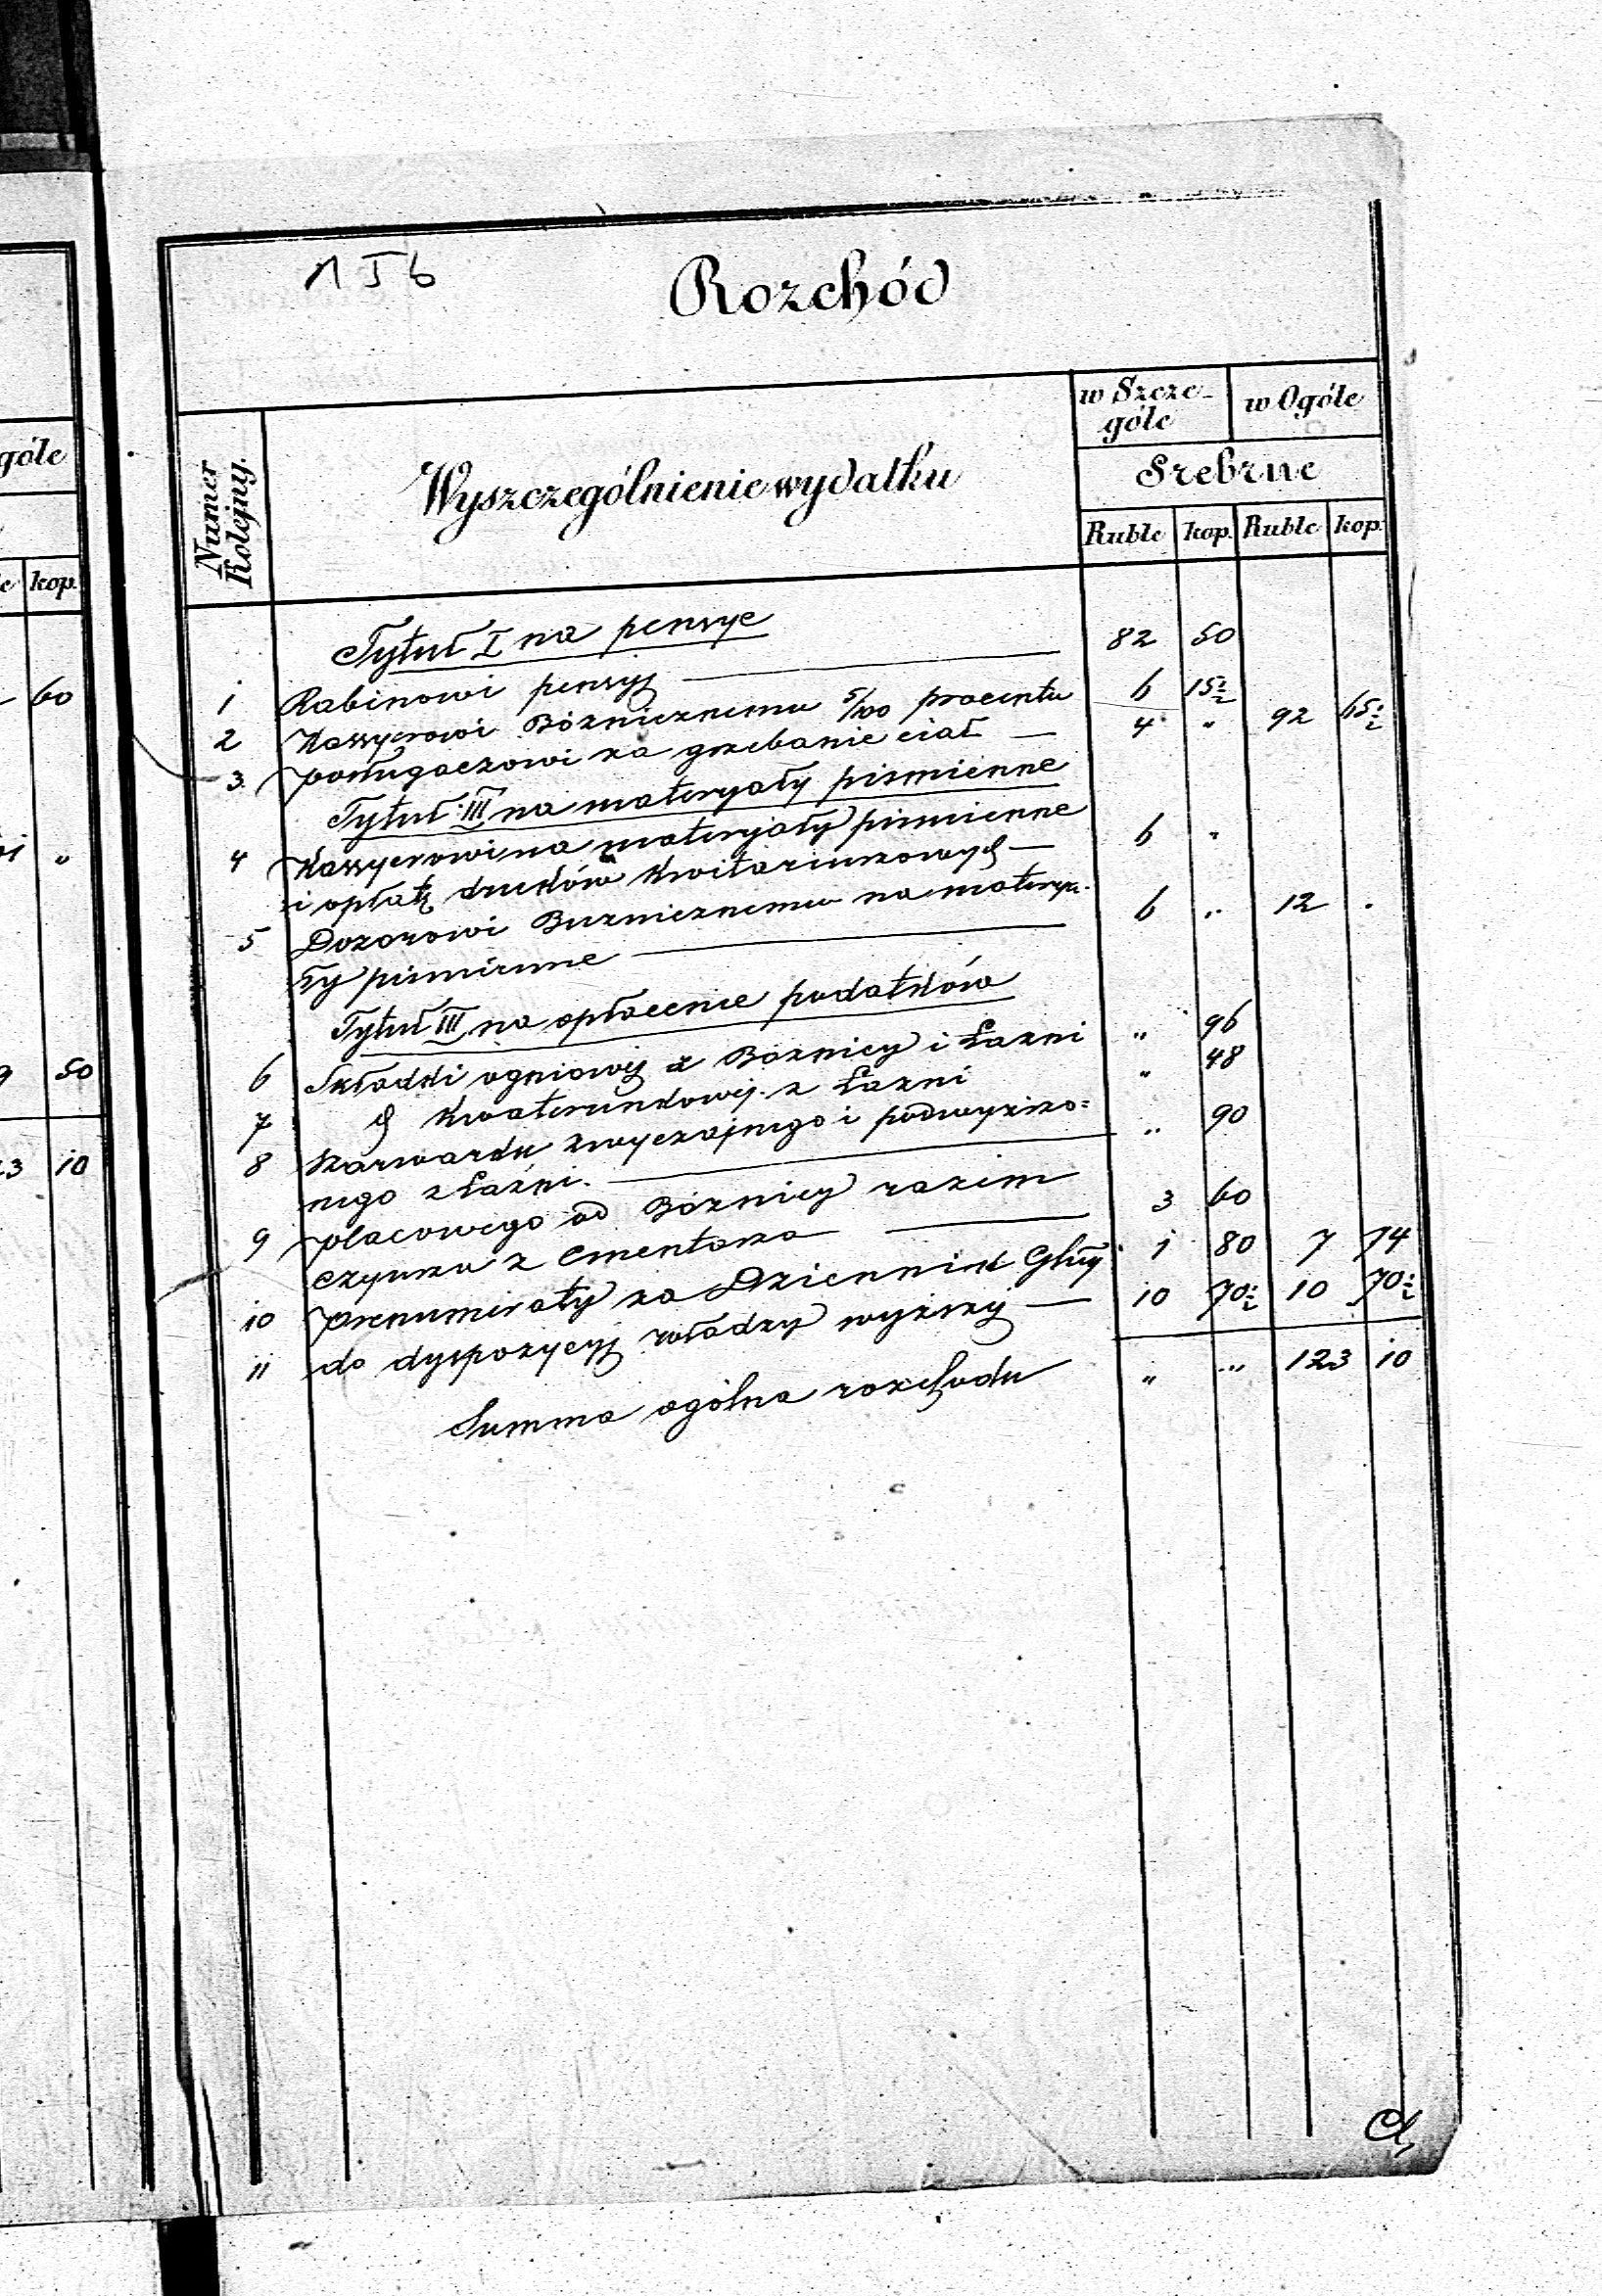 góle
kop.
60
"
50
10
1 5 b
Rozchód
Numer Kolejny.
Wyszczególnienie wydatku
w Szcze-
góle
w Ogóle
Srebrne
Ruble kop. Ruble kop.
Tytuł I na pensye
1 Rabinowi pensyj — 82 50
2 Kassyerowi Bóżnicznemu 5/100 procentu 6 15½
3 posługaczowi za grzebanie ciał — 4 " 92 65½
Tytuł III na materyały piśmienne
4 Kassyerowi na materyjały piśmienne
i opłatę druków kwitariuszowych — 6 "
5 Dozorowi Buznicznemu na materya-
ły piśmienne — 6 " 12 "
Tytuł III na opłacenie podatków
6 Składki ogniowej z Boznicy i Łazni " 96
7 d Kwaterunkowej z Łazni " 48
8 Szarwarku zwyczajnego i podwyższo=
nego z Łaźni. — " 90
9 placowego od Bóżnicy razem
czynszu z Cmentarza — 3 60
10 prenumeraty za Dziennik Głny 1 80 7 74
11 do dyspozycyj władzy wyższej — 10 70½ 10 70½
Summa ogólna rozchodu " " 123 10